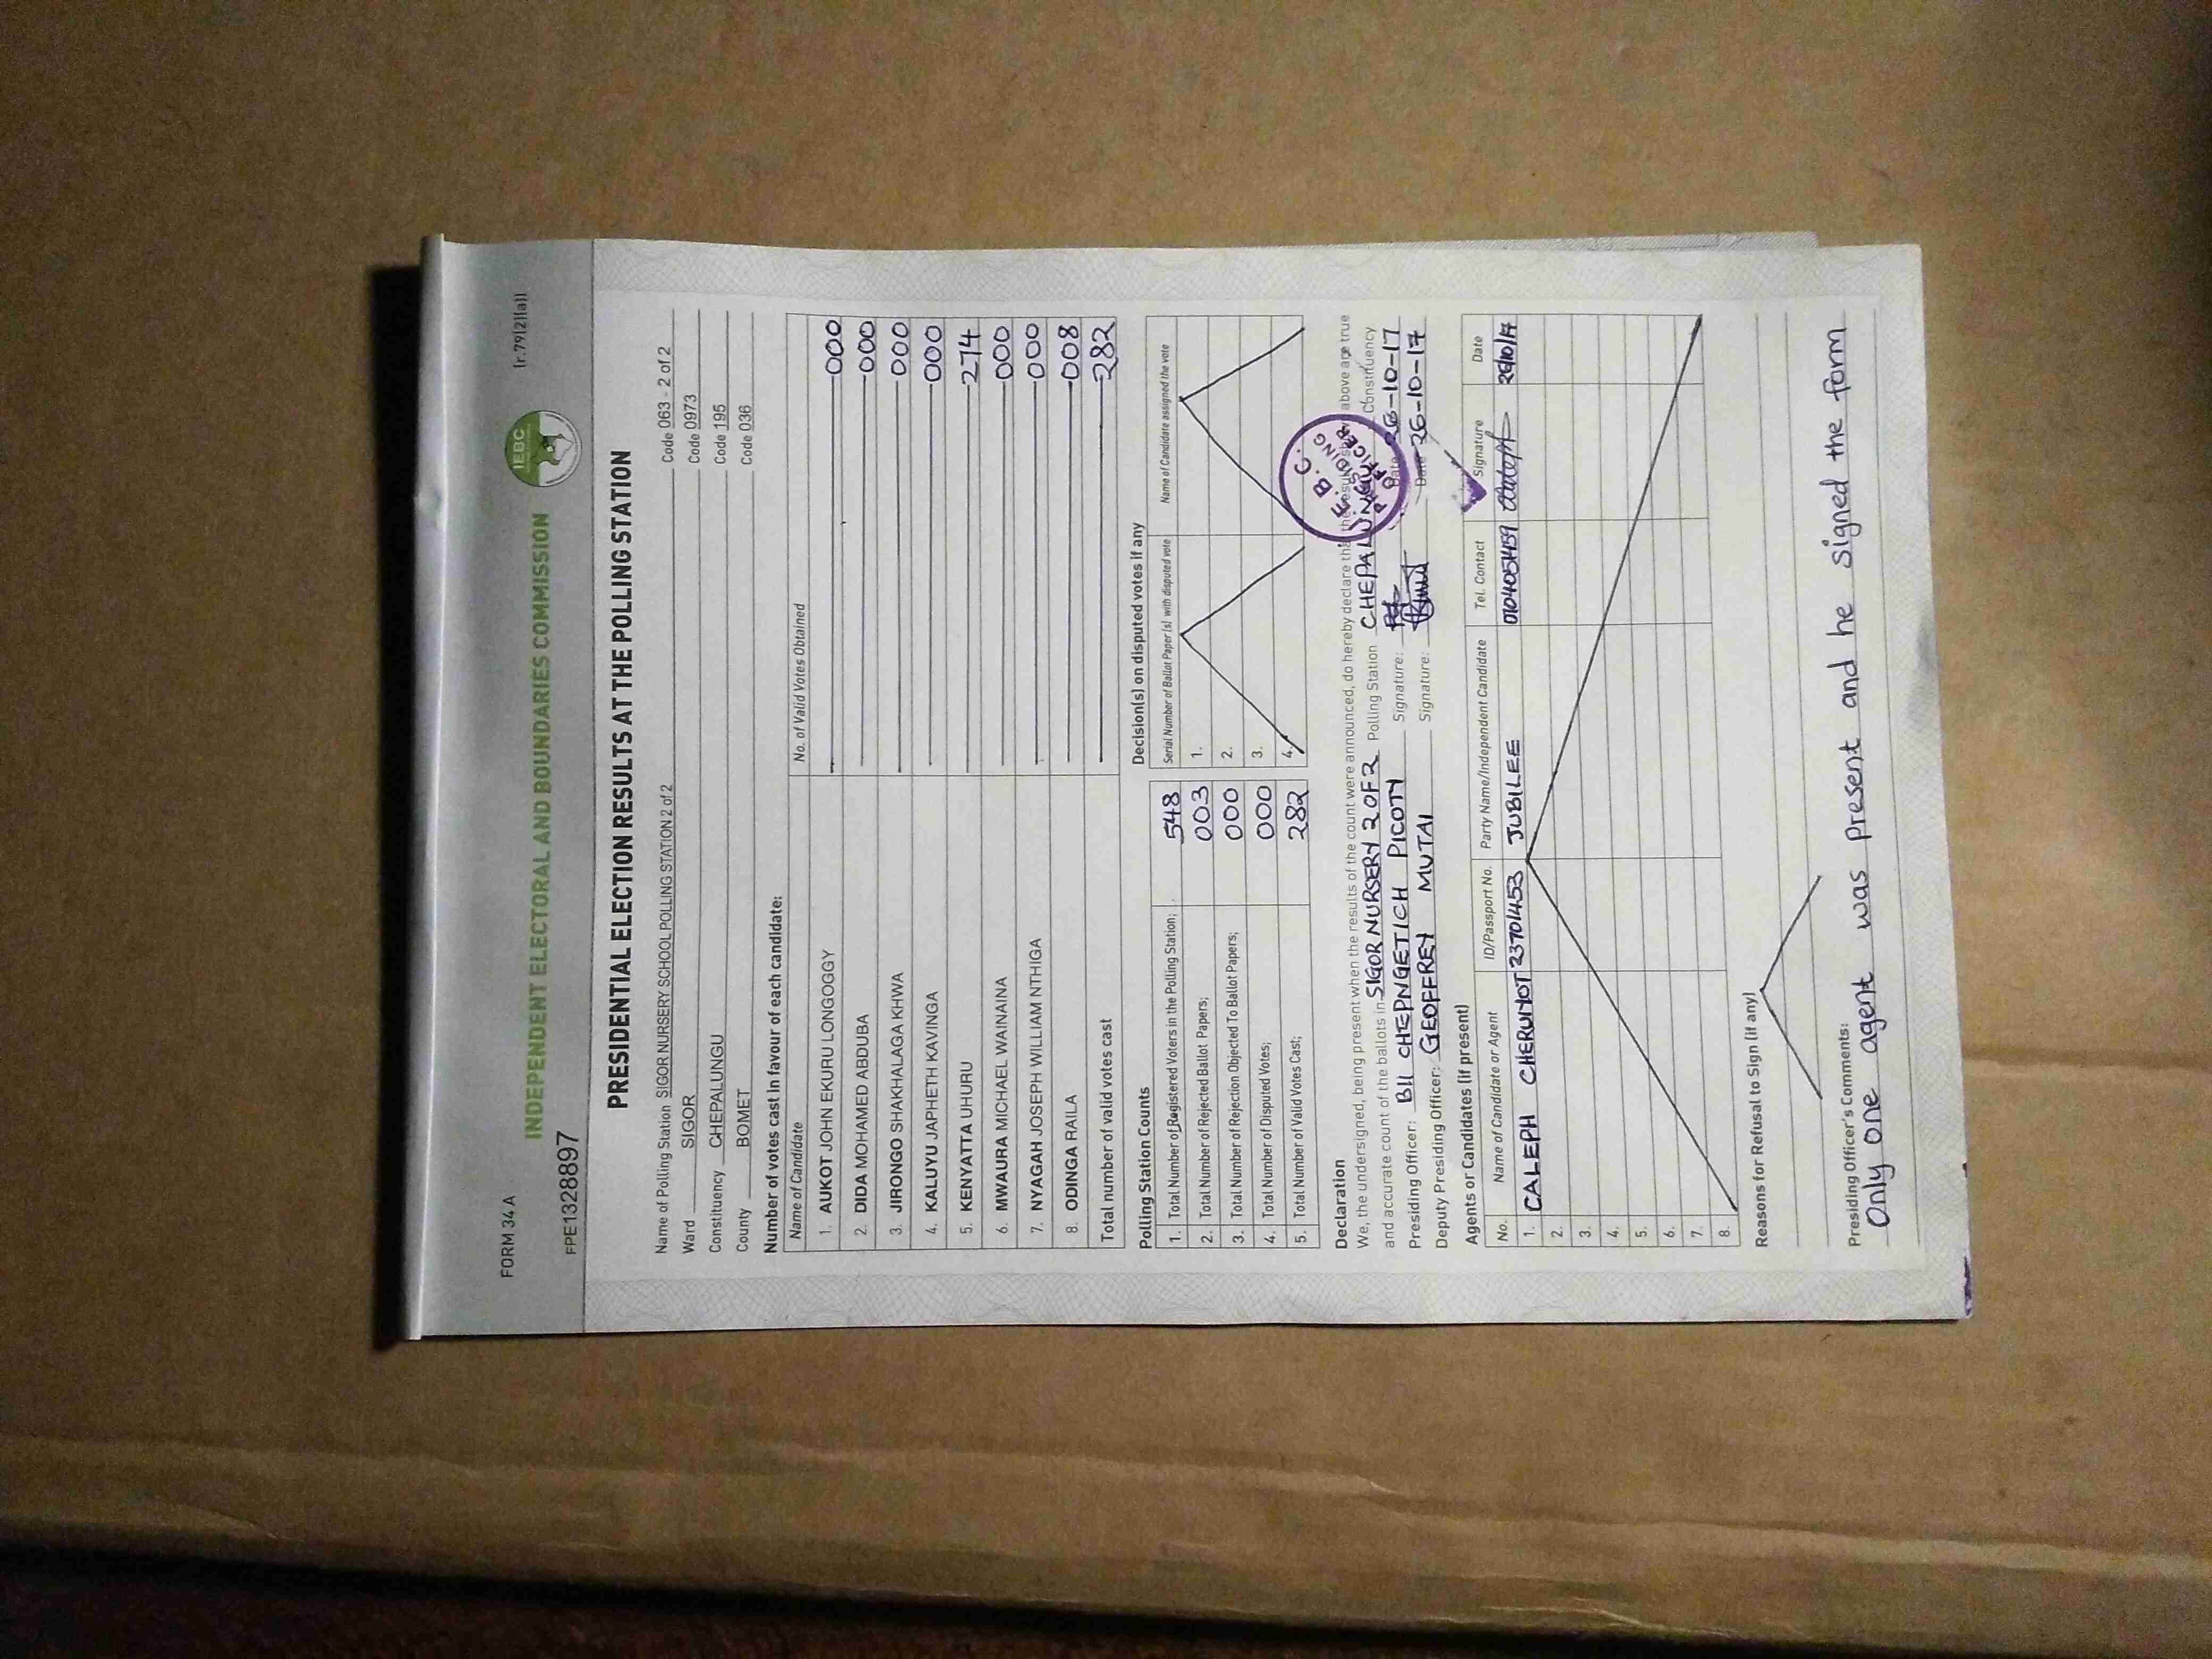 FORM 34 A
[r.79(2)(a)]
IEBC
INDEPENDENT ELECTORAL AND BOUNDARIES COMMISSION
FPE1328897
PRESIDENTIAL ELECTION RESULTS AT THE POLLING STATION
Name of Polling Station SIGOR NURSERY SCHOOL POLLING STATION 2 of 2 Code 063 - 2 of 2
Ward SIGOR Code 0973
Constituency CHEPALUNGU Code 195
County BOMET Code 036
Number of votes cast in favour of each candidate:
Name of Candidate No. of Valid Votes Obtained
1. AUKOT JOHN EKURU LONGOGGY 000
2. DIDA MOHAMED ABDUBA 000
3. JIRONGO SHAKHALAGA KHWA 000
4. KALUYU JAPHETH KAVINGA 000
5. KENYATTA UHURU 274
6. MWAURA MICHAEL WAINAINA 000
7. NYAGAH JOSEPH WILLIAM NTHIGA 000
8. ODINGA RAILA 008
Total number of valid votes cast 282
Polling Station Counts
1. Total Number of Registered Voters in the Polling Station; 548
2. Total Number of Rejected Ballot Papers; 003
3. Total Number of Rejection Objected To Ballot Papers; 000
4. Total Number of Disputed Votes; 000
5. Total Number of Valid Votes Cast; 282
Decision(s) on disputed votes if any
Serial Number of Ballot Paper (s) with disputed vote Name of Candidate assigned the vote
1.
2.
3.
4.
Declaration
We, the undersigned, being present when the results of the count were announced, do hereby declare that the results shown above are true
and accurate count of the ballots in SIGOR NURSERY 2 OF 2 Polling Station CHEPALUNGU Constituency
Presiding Officer: BII CHEPNGETICH PICOTY Signature: Date 26-10-17
Deputy Presiding Officer: GEOFFREY MUTAI Signature: Date 26-10-17
I.E.B.C. PRESIDING OFFICER
Agents or Candidates (if present)
No. Name of Candidate or Agent ID/Passport No. Party Name/Independent Candidate Tel. Contact Signature Date
1. CALEPH CHERUIYOT 23701453 JUBILEE 26/10/17
2.
3.
4.
5.
6.
7.
8.
Reasons for Refusal to Sign (if any)
Presiding Officer's Comments:
Only one agent was present and he signed the form